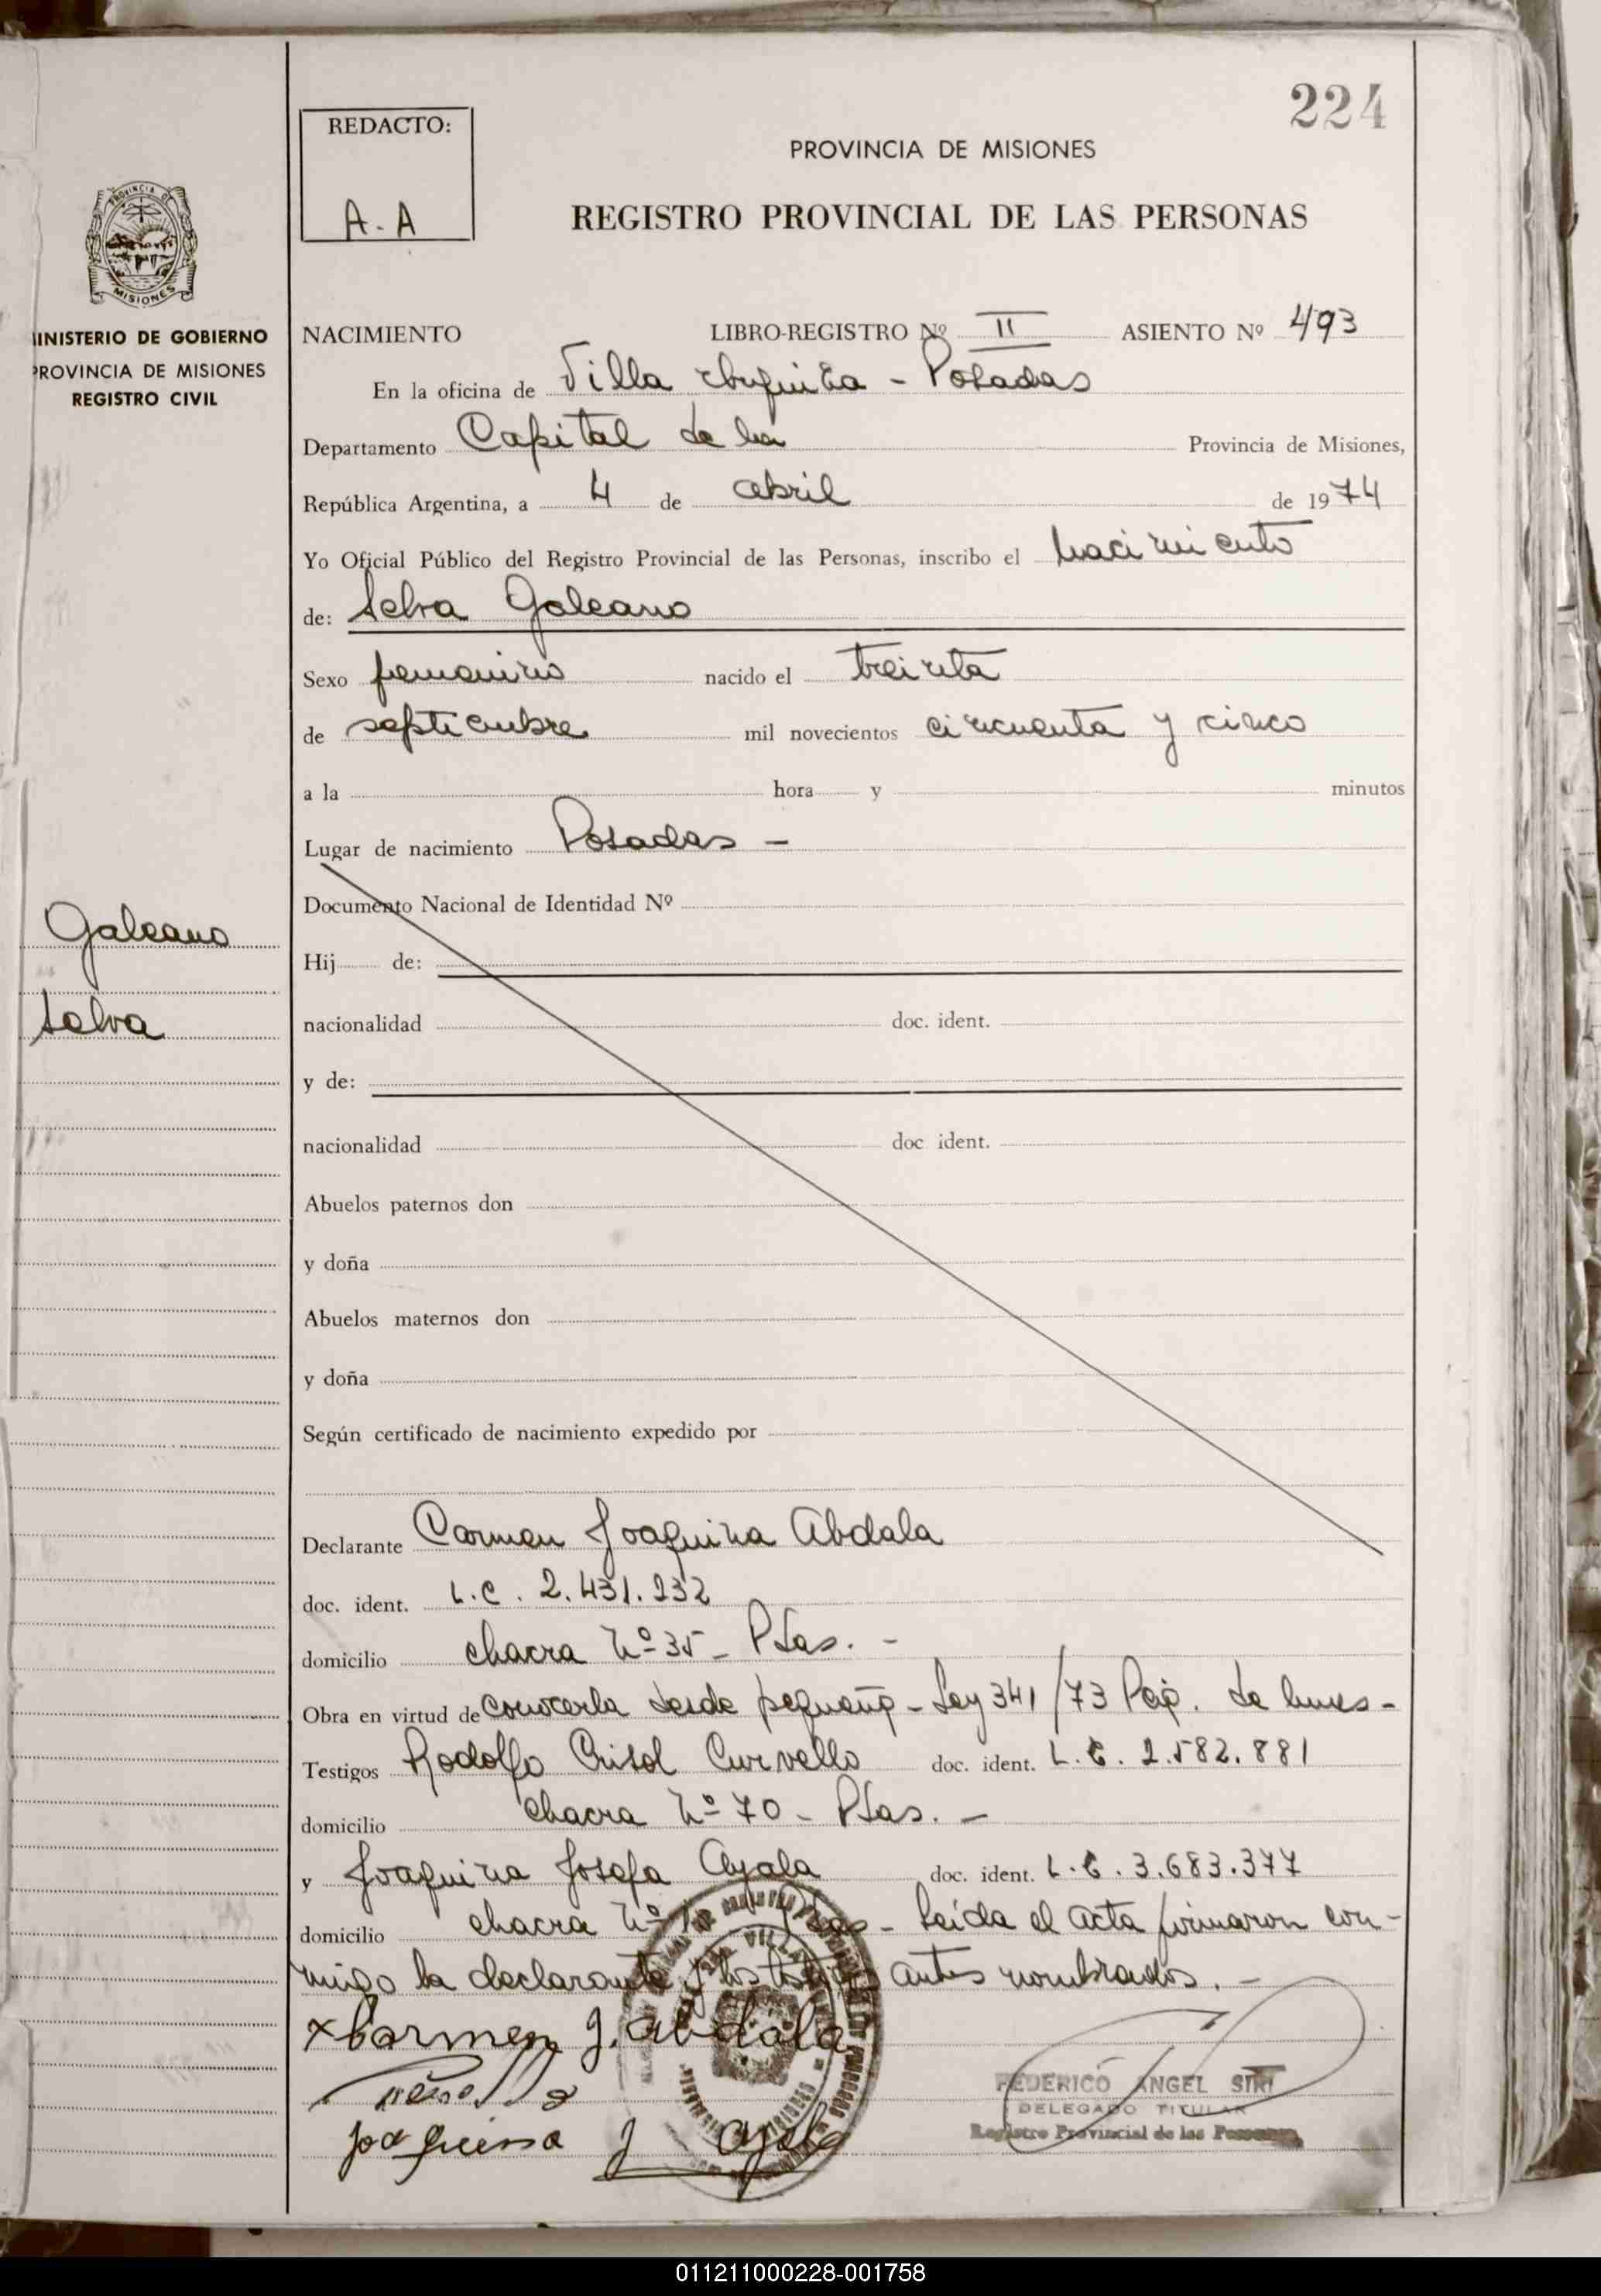 224
REDACTO:
A.A
PROVINCIA DE MISIONES
REGISTRO PROVINCIAL DE LAS PERSONAS
PROVINCIA DE
MISIONES
MINISTERIO DE GOBIERNO
PROVINCIA DE MISIONES
REGISTRO CIVIL
NACIMIENTO LIBRO-REGISTRO Nº II ASIENTO Nº 493
En la oficina de Villa Urquiza - Posadas
Departamento Capital de la Provincia de Misiones,
República Argentina, a 4 de abril de 1974
Yo Oficial Público del Registro Provincial de las Personas, inscribo el nacimiento
de: Selva Galeano
Sexo femenino nacido el treinta
de septiembre mil novecientos cincuenta y cinco
a la hora y minutos
Lugar de nacimiento Posadas -
Documento Nacional de Identidad Nº
Galeano
Hij de:
Selva
nacionalidad doc. ident.
y de:
nacionalidad doc ident.
Abuelos paternos don
y doña
Abuelos maternos don
y doña
Según certificado de nacimiento expedido por
Declarante Carmen Joaquina Abdala
doc. ident. L.C. 2.431.232
domicilio chacra Nº 35 - Psas. -
Obra en virtud de conocerla desde pequeña - Ley 341/73
Testigos Rodolfo Crisol Curvello doc. ident. L.E. 2.582.881
domicilio chacra Nº 70 - Psas. -
y Joaquina Josefa Ayala doc. ident. L.C. 3.683.377
domicilio chacra Nº Psas - Leída el acta firmaron con-
migo la declarante y los testigos antes nombrados. -
x Carmen J. Abdala
Joaquina J Ayala
FEDERICO ANGEL SIRI
DELEGADO TITULAR
Registro Provincial de las Personas
011211000228-001758